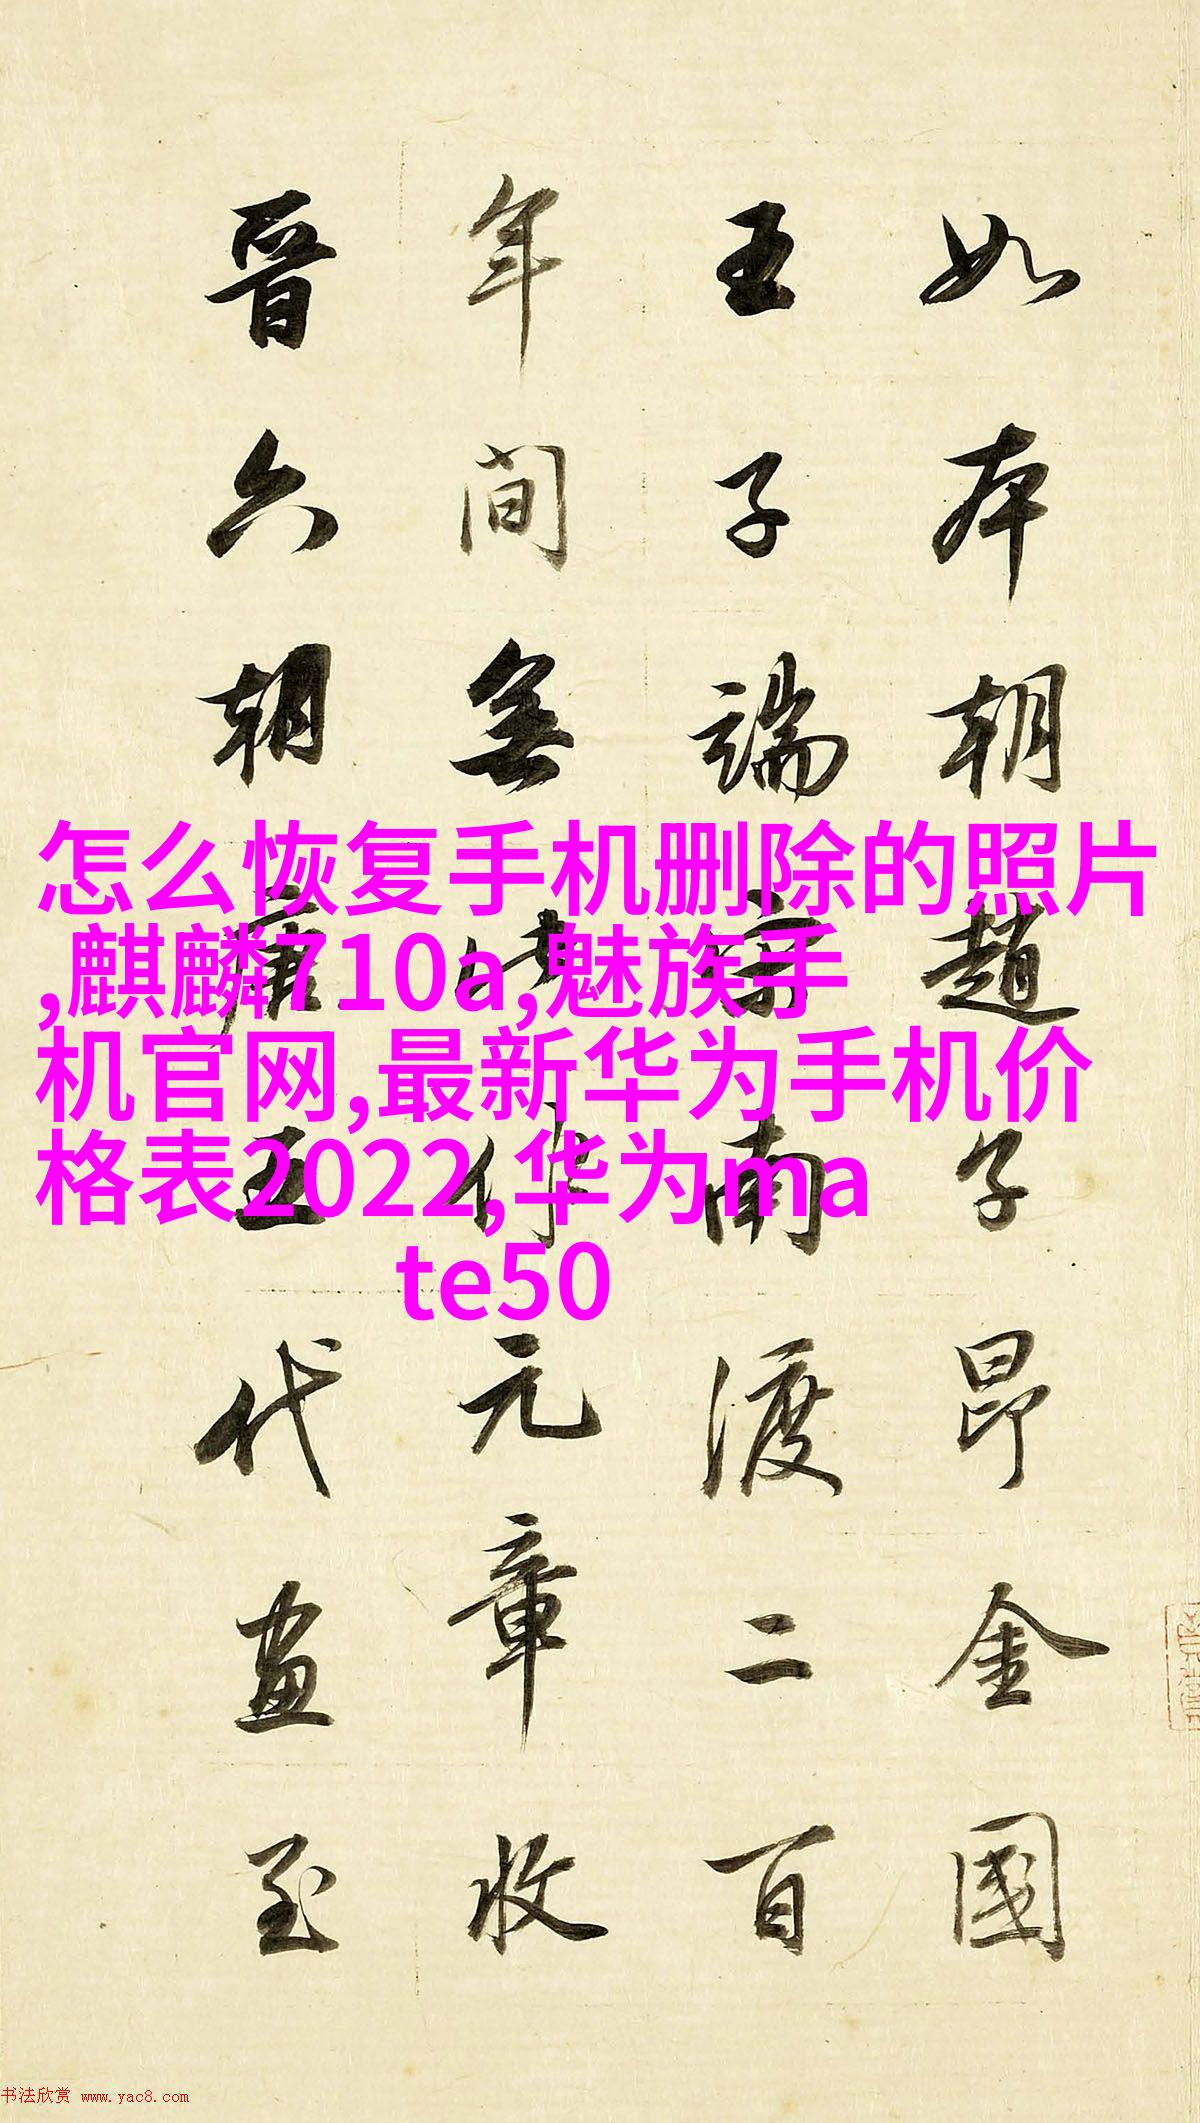 如本朝趙子昂金國
王子端宋南渡二百
年間無此作元章收
晉六朝唐五代畫至
怎么恢复手机删除的照片
,麒麟710a,魅族手
机官网,最新华为手机价
格表2022,华为ma
te50
书法欣赏 www.yac8.com